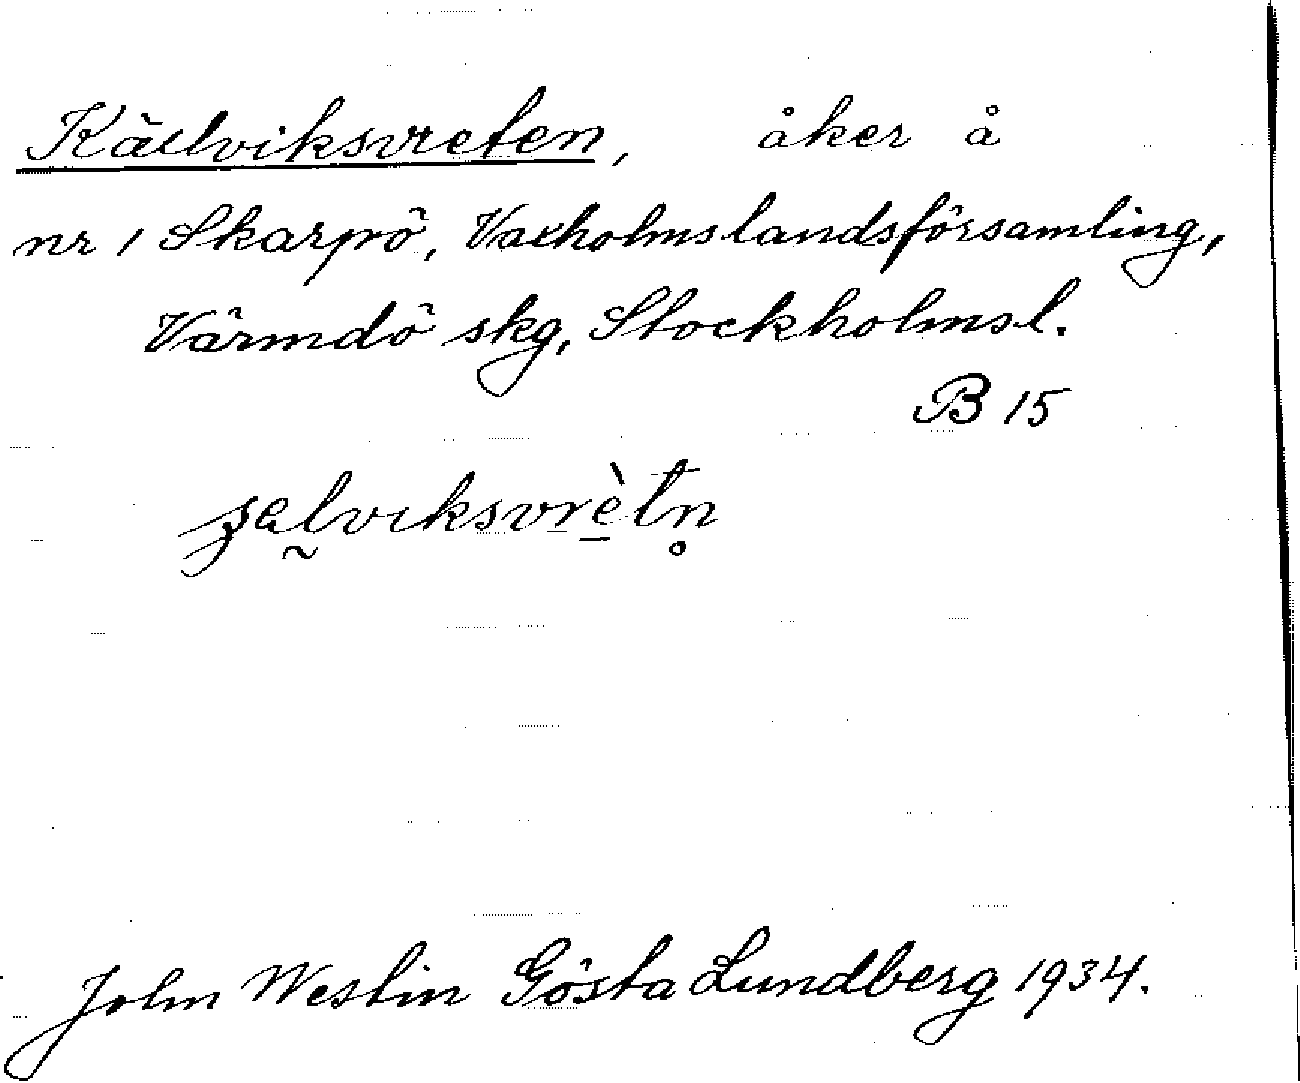 Källviksvreten, åker å
nr 1 Skarpö, Vaxholmslandsförsamling,
Värmdö skg, Stockholmsl.
B 15
John Westin Gösta Lundberg 1934.